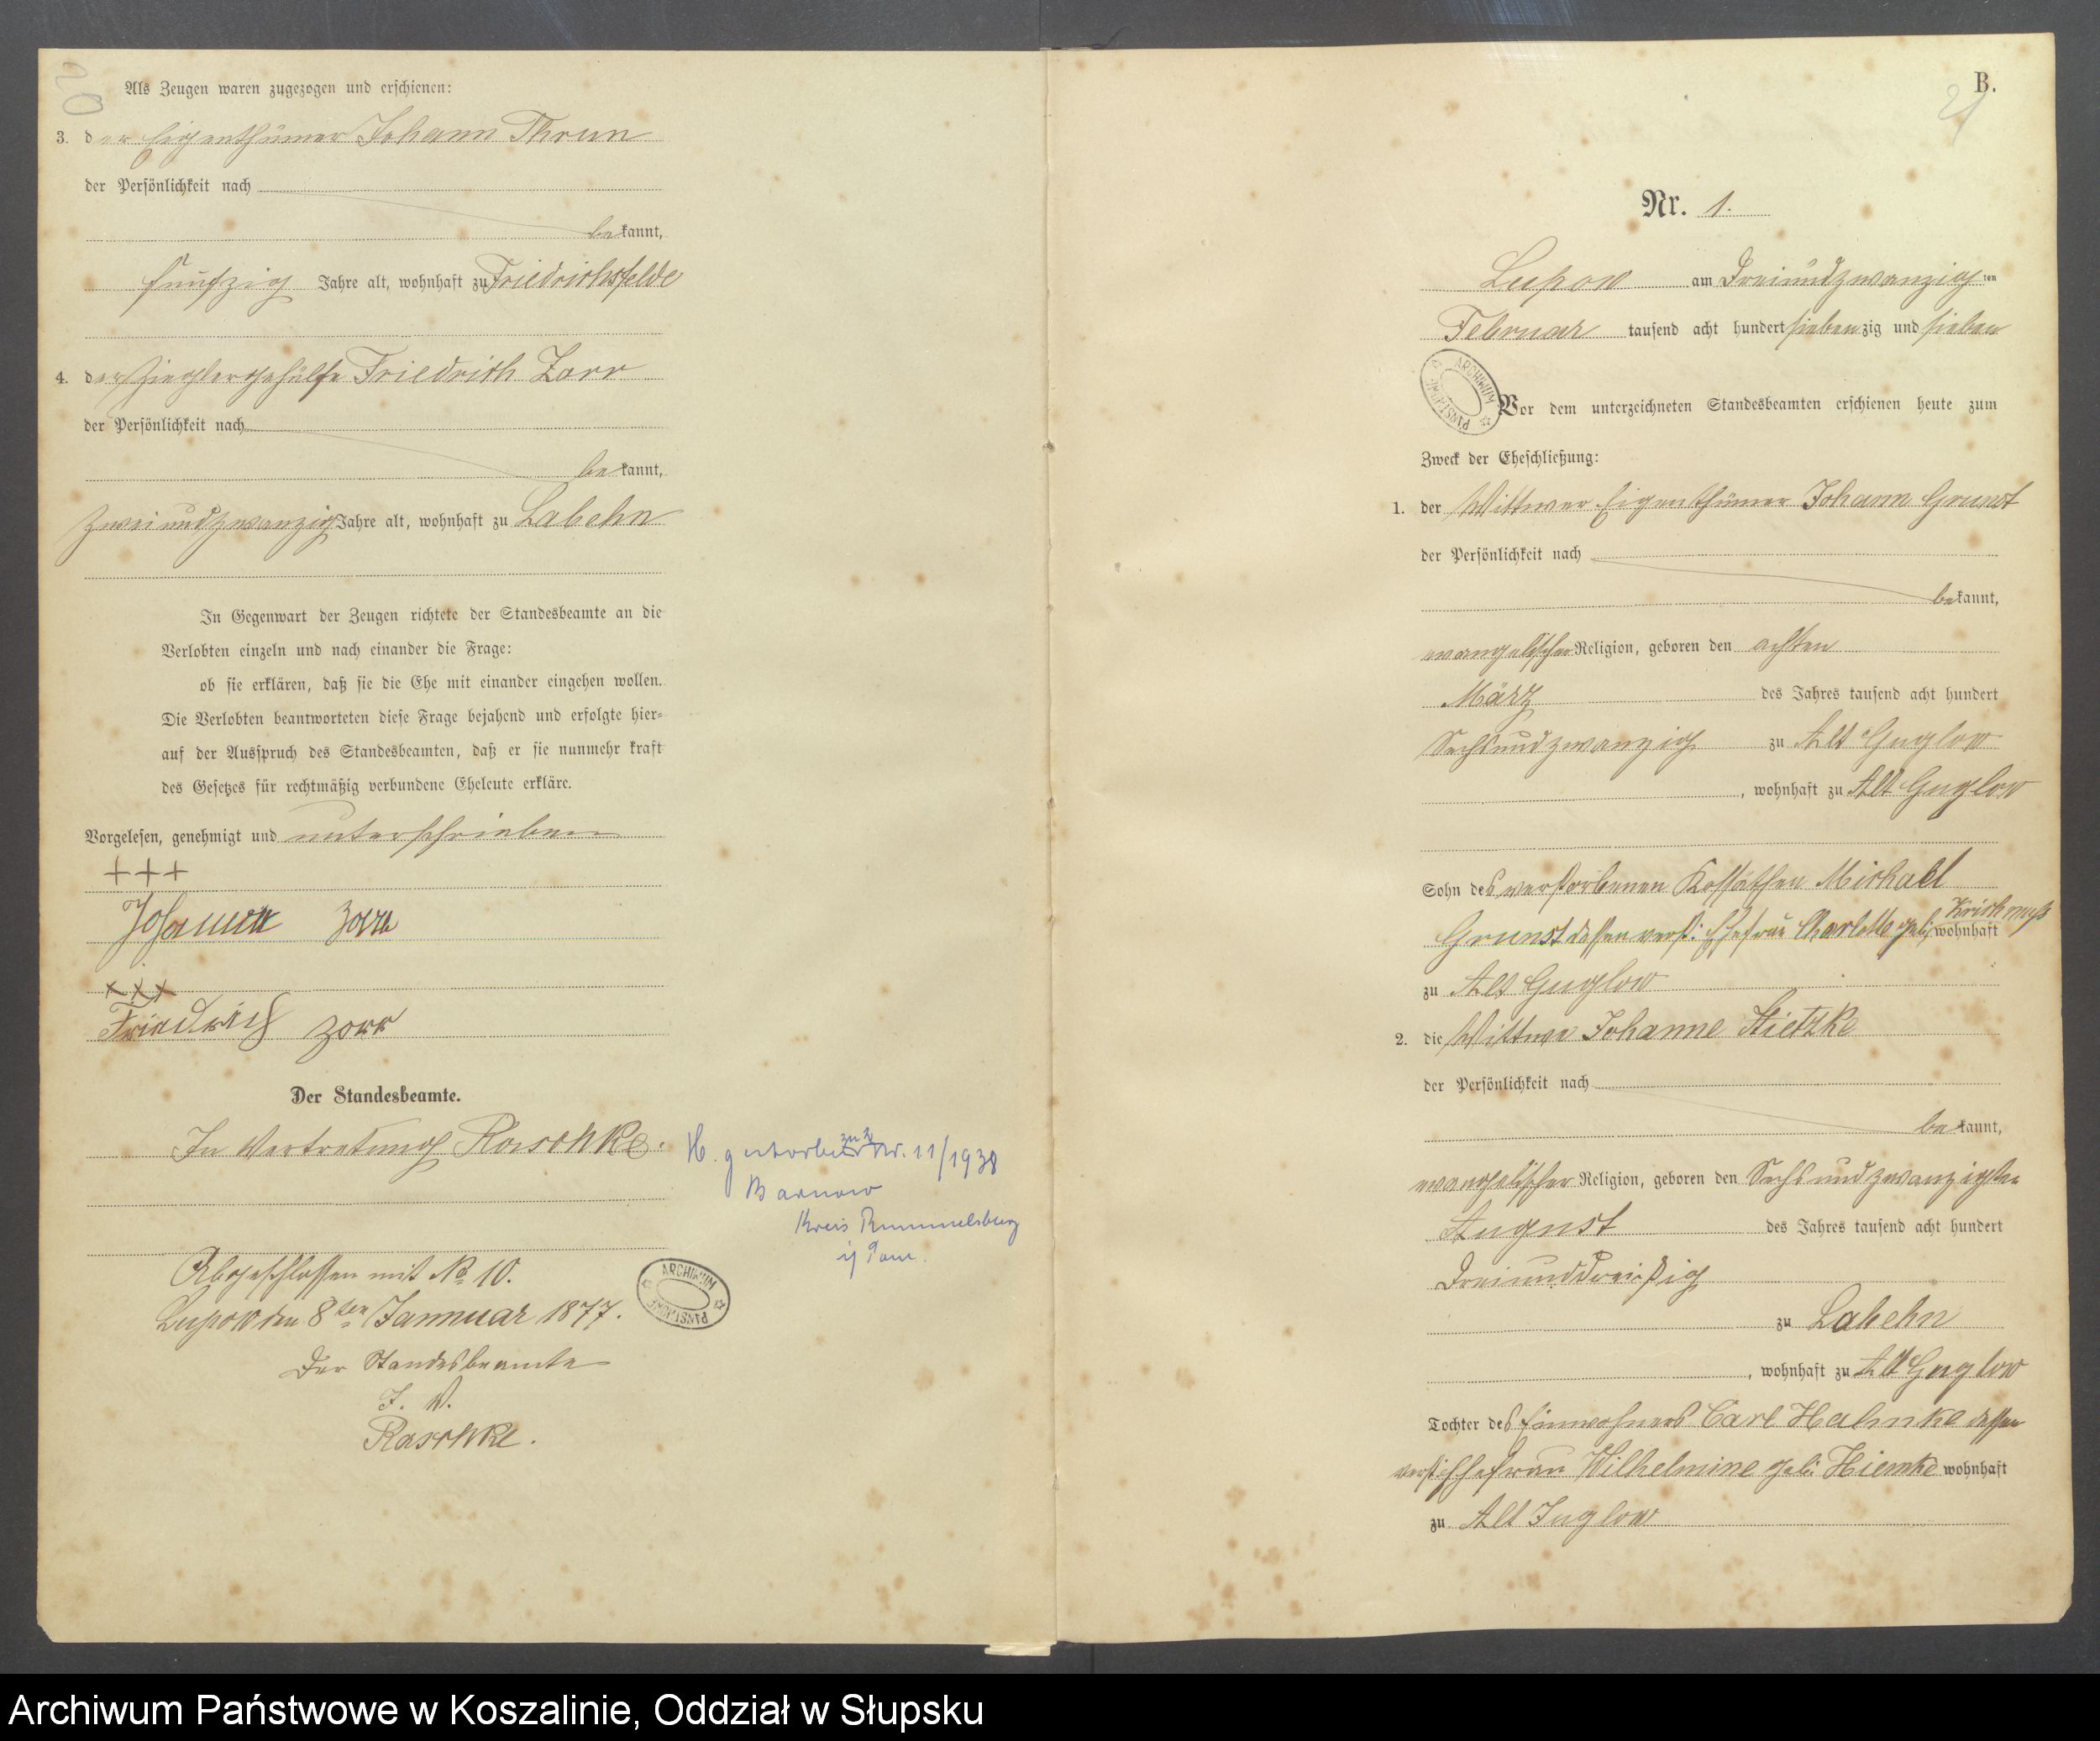 20
Als Zeugen waren zugezogen und erschienen:
3. der Eigenthümer Johann Thrun
der Persönlichkeit nach
bekannt,
fünfzig Jahre alt, wohnhaft zu Friedrichsfelde
4. der Zieglergehülfe Friedrich Zorr
der Persönlichkeit nach
bekannt,
zweiundzwanzig Jahre alt, wohnhaft zu Labehn
In Gegenwart der Zeugen richtete der Standesbeamte an die
Verlobten einzeln und nach einander die Frage:
ob sie erklären, daß sie die Ehe mit einander eingehen wollen.
Die Verlobten beantworteten diese Frage bejahend und erfolgte hier-
auf der Ausspruch des Standesbeamten, daß er sie nunmehr kraft
des Gesetzes für rechtmäßig verbundene Eheleute erkläre.
Vorgelesen, genehmigt und unterschrieben
+++
Johann Zorr
xxx
Friedrich Zorr
Der Standesbeamte.
In Vertretung Raschke.
H. gestorben Nr. 11/1938
Barnow
Kreis Rummelsburg
i/ Pom.
Abgeschlossen mit No 10.
Lupow den 8ten Januar 1877.
Der Standesbeamte
J. V.
Raschke.
ARCHIWUM PAŃSTWOWE
B.
21
Nr. 1.
Lupow am Dreiundzwanzigten
Februar tausend acht hundert siebenzig und sieben
ARCHIWUM PAŃSTWOWE
Vor dem unterzeichneten Standesbeamten erschienen heute zum
Zweck der Eheschließung:
1. der Wittwer Eigenthümer Johann Grunst
der Persönlichkeit nach
bekannt,
evangelischer Religion, geboren den achten
März des Jahres tausend acht hundert
Sechsundzwanzig zu Alt Guglow
, wohnhaft zu Alt Guglow
Sohn des verstorbenen Kossäthen Michael
Grunst dessen verst: Ehefrau Charlotte geb: wohnhaft
zu Alt Guglow
2. die Wittwe Johanne Stietzke
der Persönlichkeit nach
bekannt,
evangelischer Religion, geboren den Sechsundzwanzigsten
August des Jahres tausend acht hundert
Dreiunddreißig
zu Labehn
, wohnhaft zu Alt Guglow
Tochter des Einwohners Carl Hahnke dessen
verst: Ehefrau Wilhelmine geb: Hiemke wohnhaft
zu Alt Juglow
Archiwum Państwowe w Koszalinie, Oddział w Słupsku